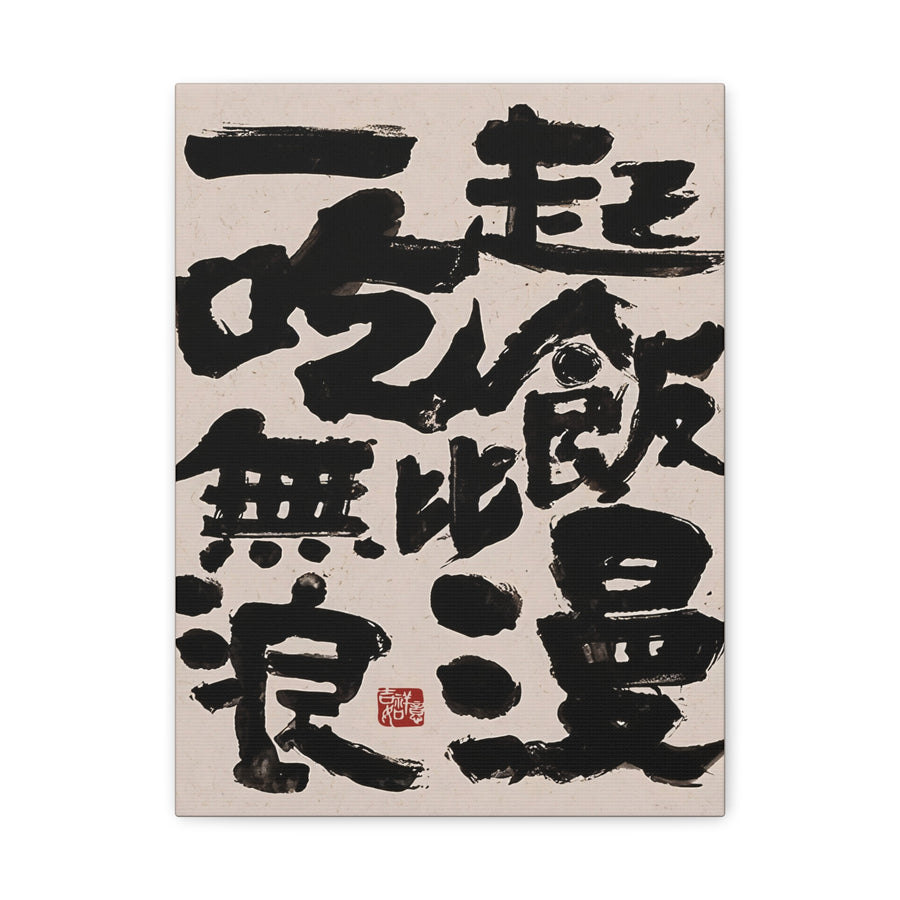 一起
吃飯
無比
浪漫
吉祥如意